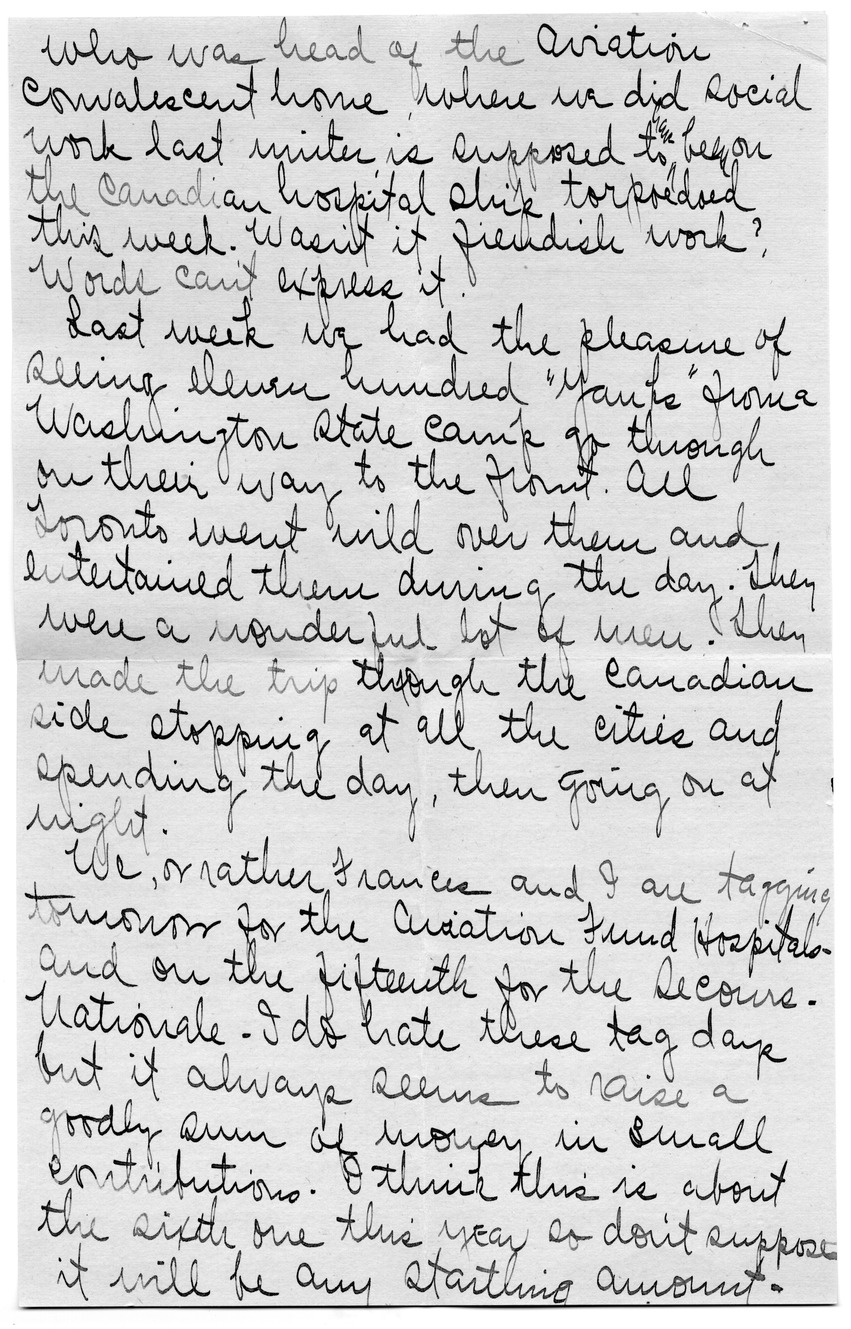 who was head of the Aviation
Convalescent home, where we did social
work last winter, is supposed to have been on
the Canadian hospital ship torpedoed
this week. Wasn't it fiendish work?
Words can't express it.
Last week we had the pleasure of
seeing eleven hundred "Yanks" from a
Washington State Camp go through
on their way to the front. All
Toronto went wild over them and
entertained them during the day. They
were a wonderful lot of men. They
made the trip through the Canadian
side stopping at all the cities and
spending the day, then going on at
night.
We, or rather Frances and I are tagging
tomorrow for the Aviation Fund Hospitals-
and on the fifteenth for the Secours-
Nationale - I do hate these tag days
but it always seems to raise a
goodly sum of money in small
contributions. I think this is about
the sixth one this year so don't suppose
it will be any startling amount-